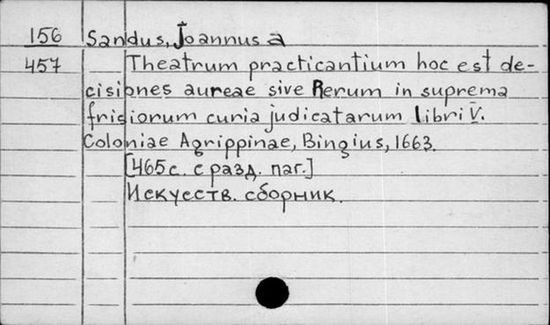 156 Sandus, Joannus a
457 Theatrum practicantium hoc est de-
cisiones aureae sive Rerum in suprema
frisiorum curia judicatarum libri V.
Coloniae Agrippinae, Bingius, 1663.
[465с. с разд. паг.]
Искусств. сборник.